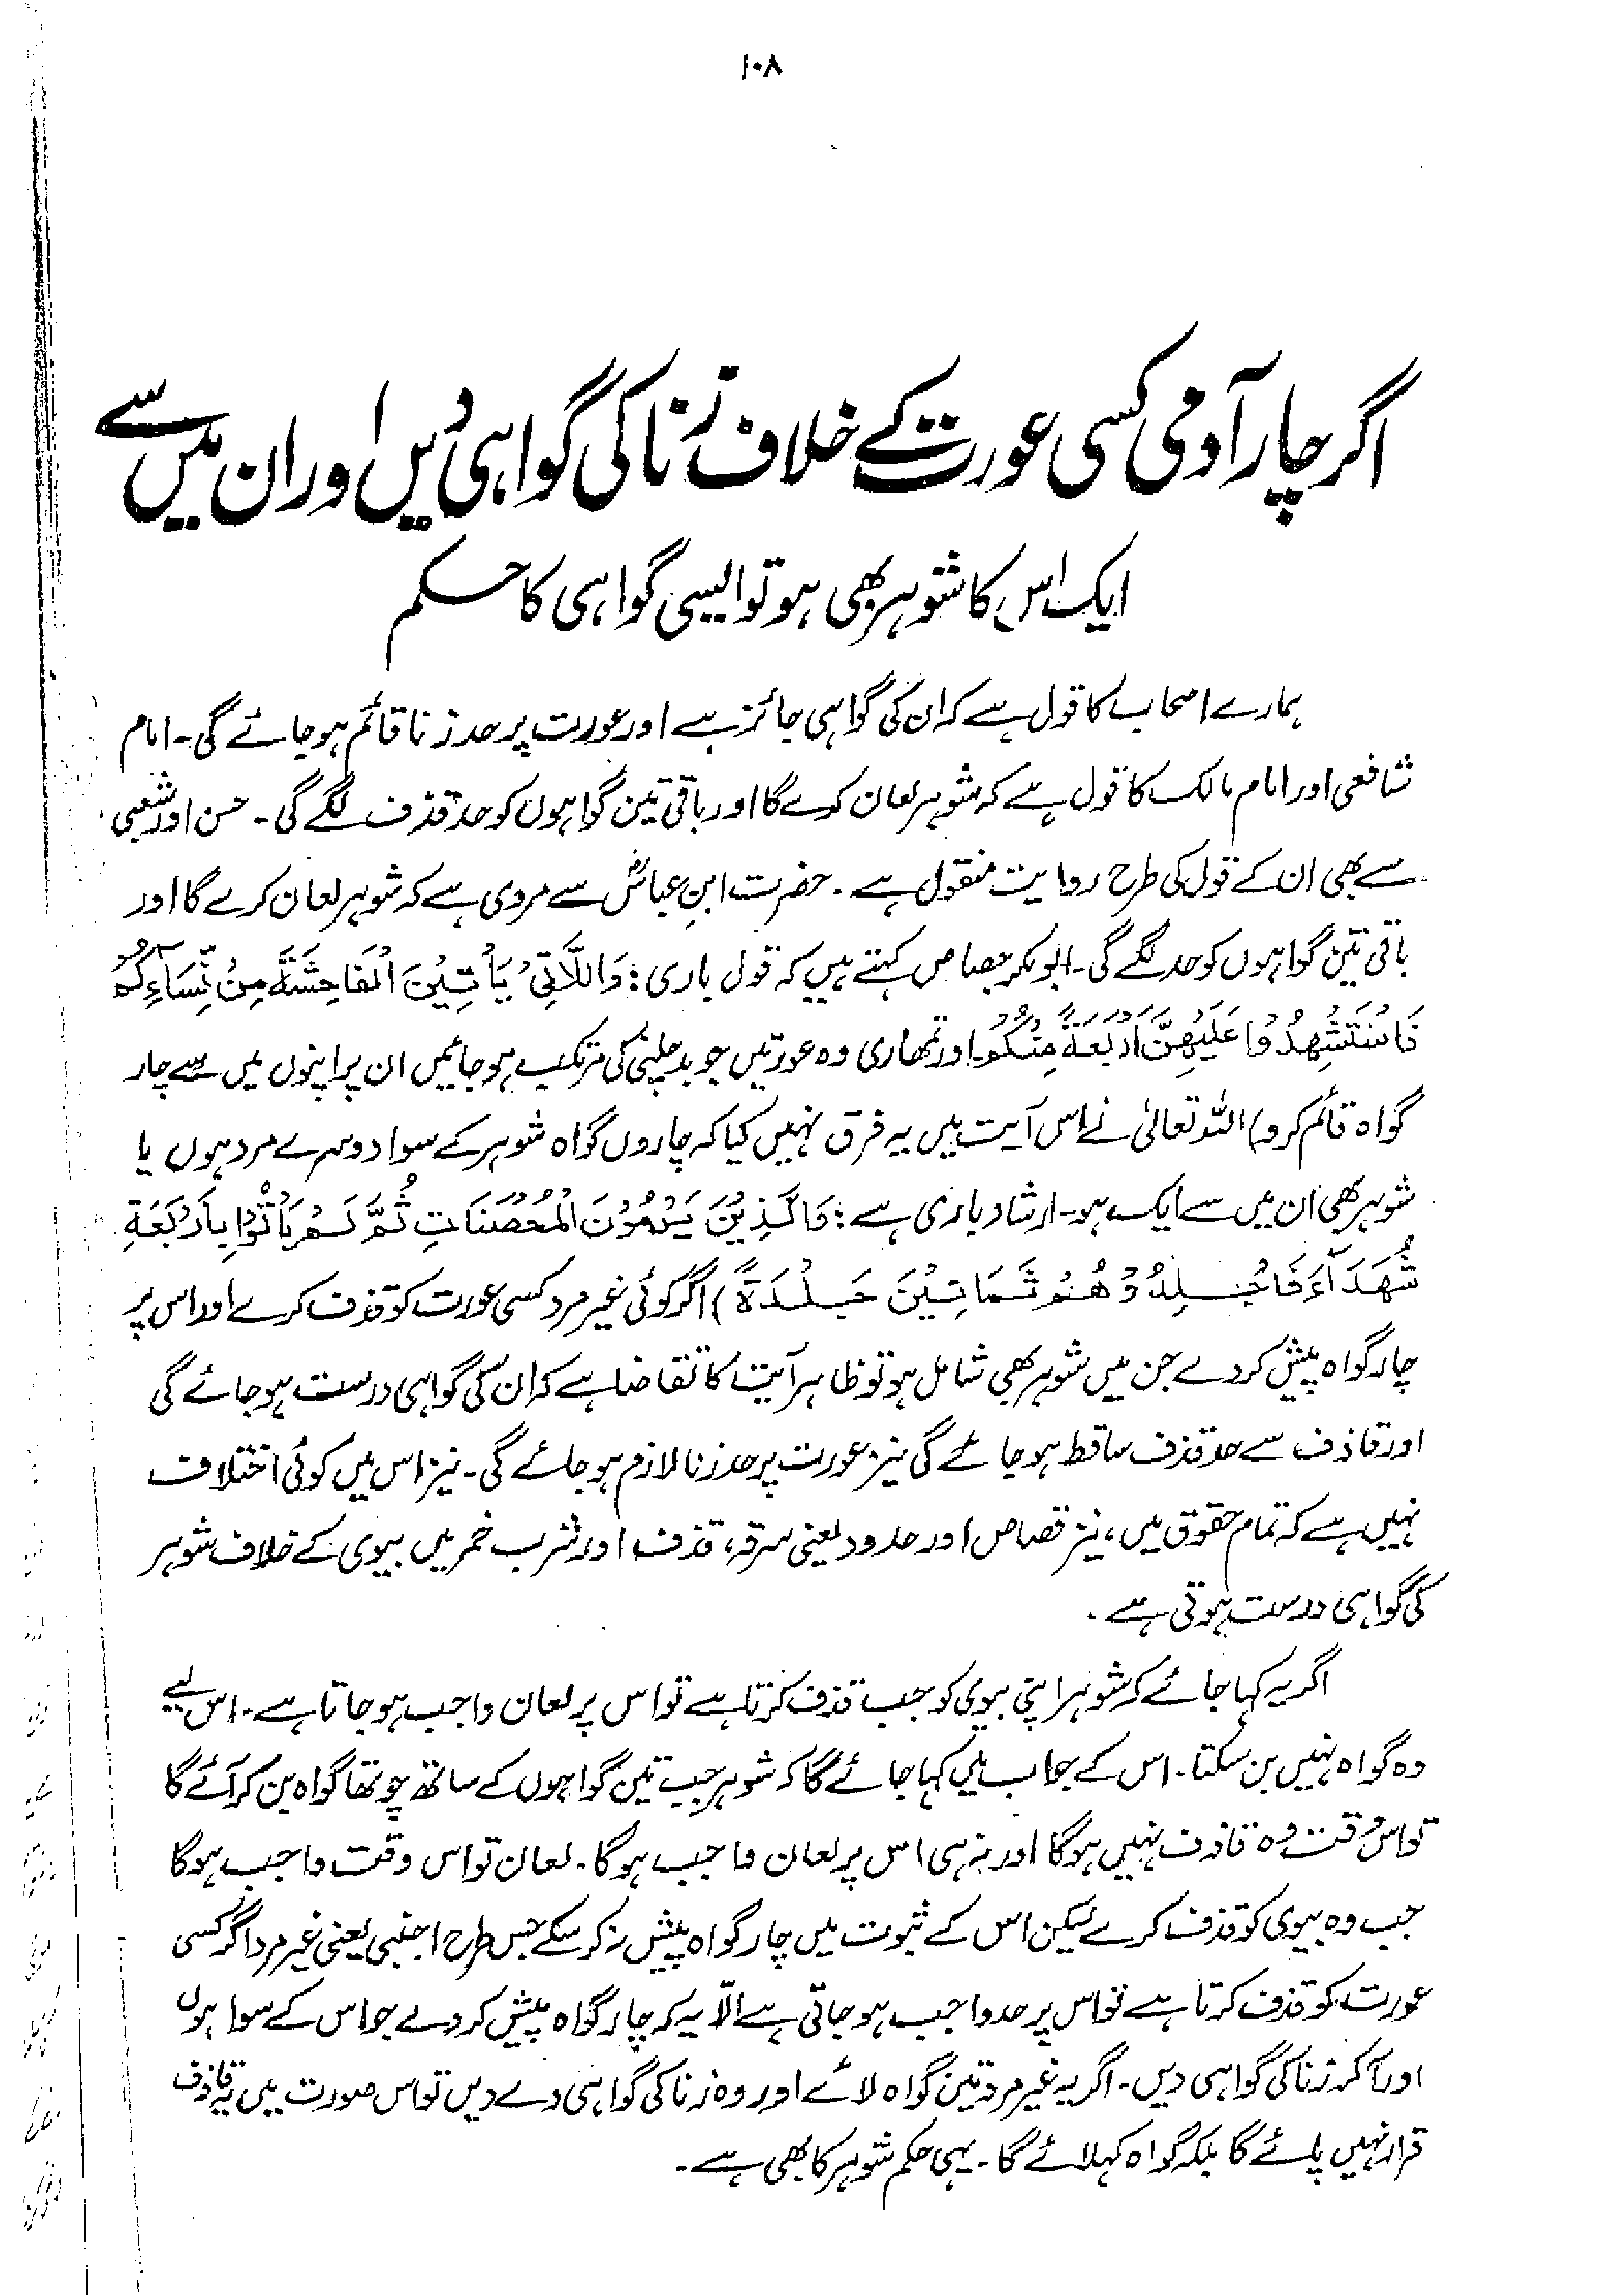 ۱۰۸
اگر چار آدمی کسی عورت کے خلاف زنا کی گواہی دیں اور ان میں سے
ایک اس کا شوہر بھی ہو تو ایسی گواہی کا حکم
ہمارے اصحاب کا قول ہے کہ ان کی گواہی جائز ہے اور عورت پر حد زنا قائم ہو جائے گی۔ امام
شافعی اور امام مالک کا قول ہے کہ شوہر لعان کرے گا اور باقی تین گواہوں کو حد قذف لگے گی۔ حسن اور شعبی
سے بھی ان کے قول کی طرح روایت منقول ہے۔ حضرت ابنِ عباسؓ سے مروی ہے کہ شوہر لعان کرے گا اور
باقی تین گواہوں کو حد لگے گی۔ ابو بکر جصاص کہتے ہیں کہ قول باری: وَاللَّاتِیْ یَأْتِیْنَ الْفَاحِشَةَ مِنْ نِّسَآءِكُمْ
فَاسْتَشْهِدُوْا عَلَیْهِنَّ اَرْبَعَةً مِّنْكُمْ اور تمھاری وہ عورتیں جو بدچلنی کی مرتکب ہو جائیں ان پر اپنوں میں سے چار
گواہ قائم کرو) اللہ تعالیٰ نے اس آیت میں یہ فرق نہیں کیا کہ چاروں گواہ شوہر کے سوا دوسرے مرد ہوں یا
شوہر بھی ان میں سے ایک ہو۔ ارشاد باری ہے: وَالَّذِیْنَ یَرْمُوْنَ الْمُحْصَنَاتِ ثُمَّ لَمْ یَأْتُوْا بِاَرْبَعَةِ
شُهَدَآءَ فَاجْلِدُوْهُمْ ثَمَانِیْنَ جَلْدَةً) اگر کوئی غیر مرد کسی عورت کو قذف کرے اور اس پر
چار گواہ پیش کردے جن میں شوہر بھی شامل ہو تو ظاہر آیت کا تقاضا ہے کہ ان کی گواہی درست ہو جائے گی
اور قاذف سے حد قذف ساقط ہو جائے گی نیز عورت پر حد زنا لازم ہو جائے گی۔ نیز اس میں کوئی اختلاف
نہیں ہے کہ تمام حقوق میں، نیز قصاص اور حدود یعنی سرقہ، قذف اور شرب خمر میں بیوی کے خلاف شوہر
کی گواہی درست ہوتی ہے۔
اگر یہ کہا جائے کہ شوہر اپنی بیوی کو جب قذف کرتا ہے تو اس پر لعان واجب ہو جاتا ہے۔ اس لیے
وہ گواہ نہیں بن سکتا۔ اس کے جواب میں کہا جائے گا کہ شوہر جب تین گواہوں کے ساتھ چوتھا گواہ بن کر آئے گا
تو اس وقت وہ قاذف نہیں ہوگا اور نہ ہی اس پر لعان واجب ہوگا۔ لعان تو اس وقت واجب ہوگا
جب وہ بیوی کو قذف کرے لیکن اس کے ثبوت میں چار گواہ پیش نہ کر سکے جس طرح اجنبی یعنی غیر مرد اگر کسی
عورت کو قذف کرتا ہے تو اس پر حد واجب ہو جاتی ہے الّا یہ کہ چار گواہ پیش کردے جو اس کے سوا ہوں
اور آکر زنا کی گواہی دیں۔ اگر یہ غیر مرد تین گواہ لائے اور وہ زنا کی گواہی دے دیں تو اس صورت میں یہ قاذف
قرار نہیں پائے گا بلکہ گواہ کہلائے گا۔ یہی حکم شوہر کا بھی ہے۔